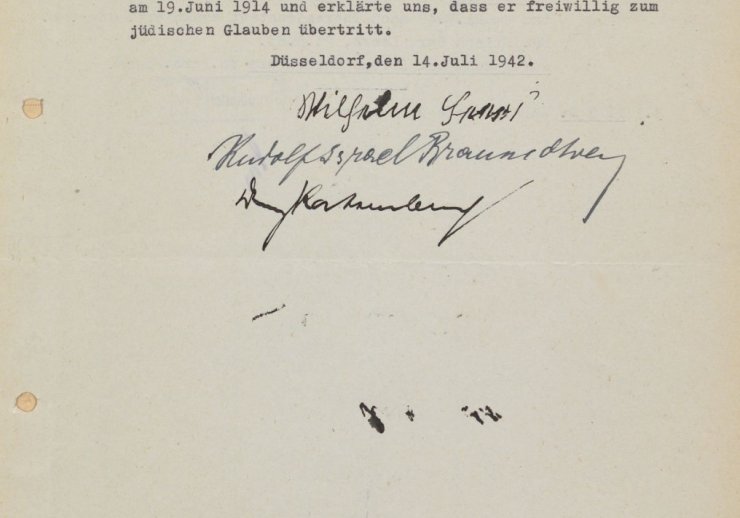 am 19.Juni 1914 und erklärte uns, dass er freiwillig zum
jüdischen Glauben übertritt.
Düsseldorf,den 14.Juli 1942.
Wilhelm
Rudolf Israel